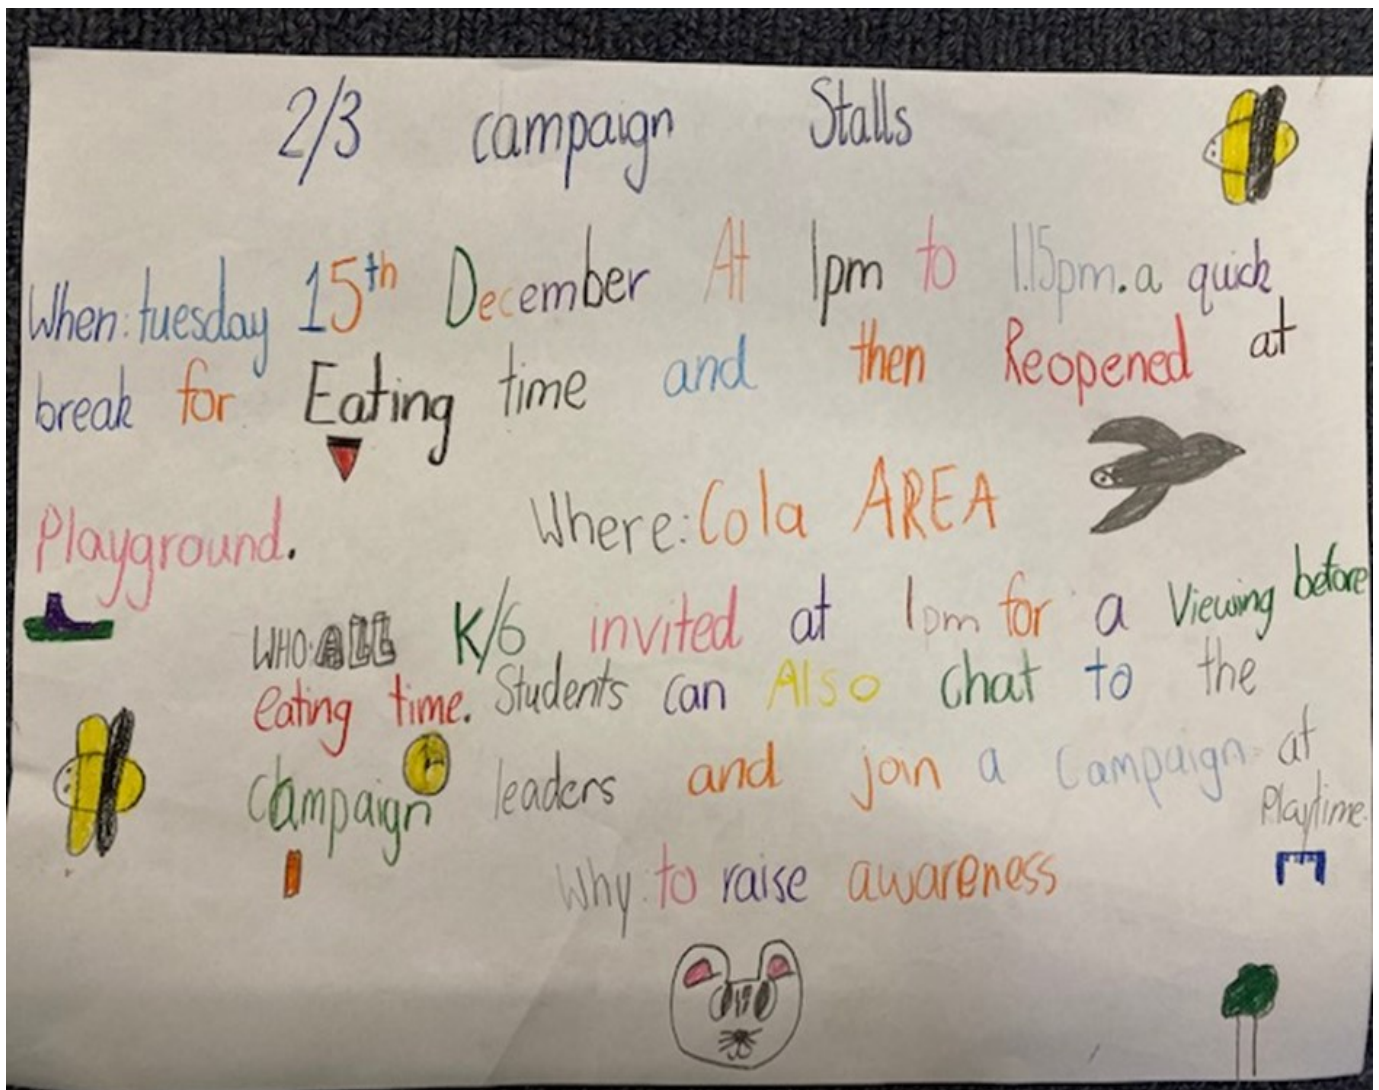 2/3 campaign Stalls
When: tuesday 15th December At 1pm to 1.15pm. a quick
break for Eating time and then Reopened at
Playground.
Where: Cola AREA
WHO: ALL K/6 invited at 1pm for a Viewing before
eating time. Students can Also chat to the
Campaign leaders and join a Campaign at
Playtime.
Why: to raise awareness